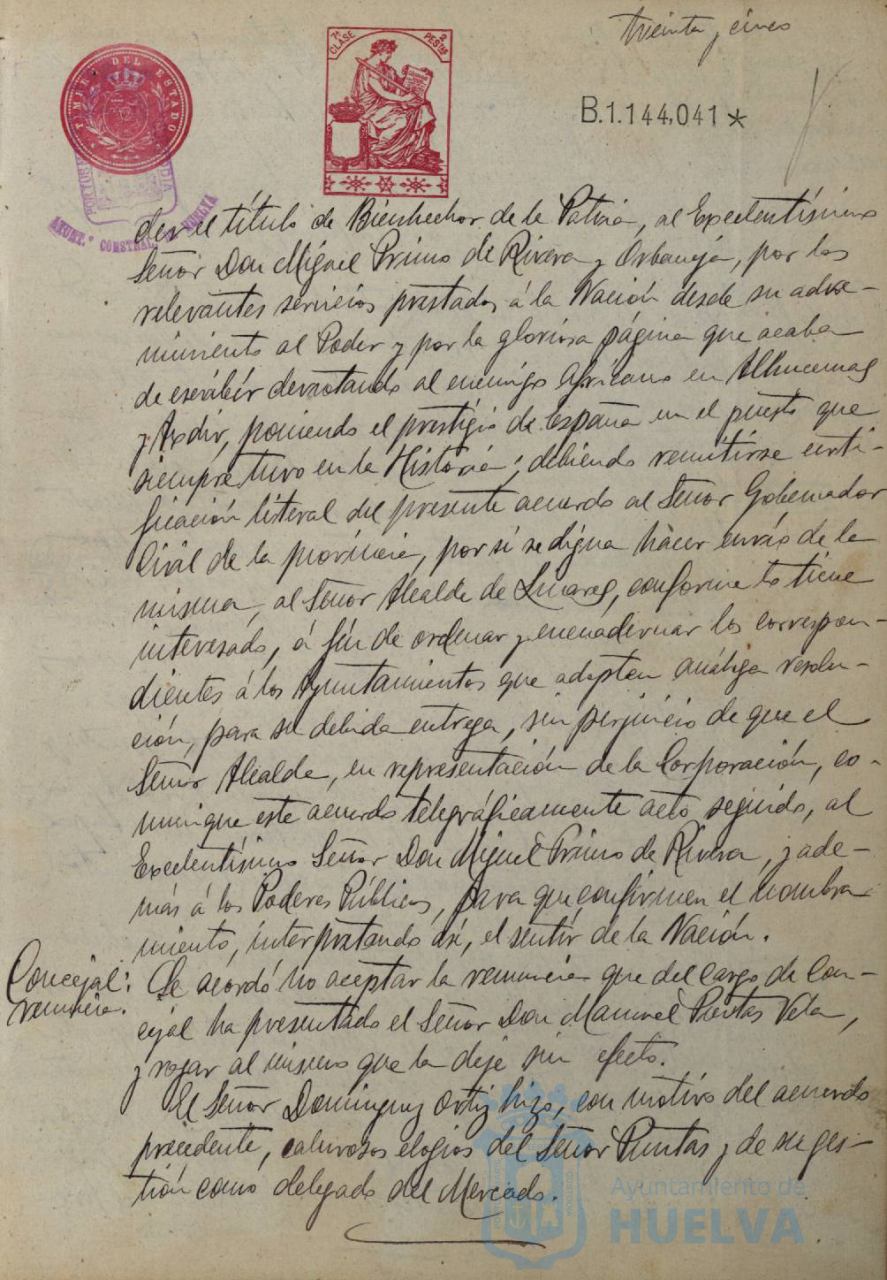 treinta y cinco
TIMBRE DEL ESTADO
7ª CLASE 2 PESTAS
B.1.144,041*
AYUNT.º CONSTNAL. HUELVA
der el título de Bienhechor de la Patria, al Excelentísimo
Señor Don Miguel Primo de Rivera y Orbaneja, por los
relevantes servicios prestados á la Nación desde su adve-
nimiento al Poder y por la gloriosa página que acaba
de escribir derrotando al enemigo africano en Alhucemas
y Axdir, poniendo el prestigio de España en el puesto que
siempre tuvo en la Historia; debiendo remitirse certi-
ficación literal del presente acuerdo al Señor Gobernador
Civil de la provincia, por si se digna hacer envío de la
misma, al Señor Alcalde de Linares, conforme lo tiene
interesado, á fin de ordenar y encuadernar los correspon-
dientes á los Ayuntamientos que adopten análoga resolu-
ción, para su debida entrega, sin perjuicio de que el
Señor Alcalde, en representación de la Corporación, co-
munique este acuerdo telegráficamente acto seguido, al
Excelentísimo Señor Don Miguel Primo de Rivera, y ade-
más á los Poderes Públicos, para que confirmen el nombra-
miento, interpretando así, el sentir de la Nación.
Concejal:
renuncia.
Se acordó no aceptar la renuncia que del cargo de Con-
cejal ha presentado el Señor Don Manuel Puntas Vela,
y rogar al mismo que la deje sin efecto.
El Señor Dominguez Ortiz hizo, con motivo del acuerdo
precedente, calurosos elogios del Señor Puntas y de su ges-
tión como delegado del Mercado.
Ayuntamiento de
HUELVA